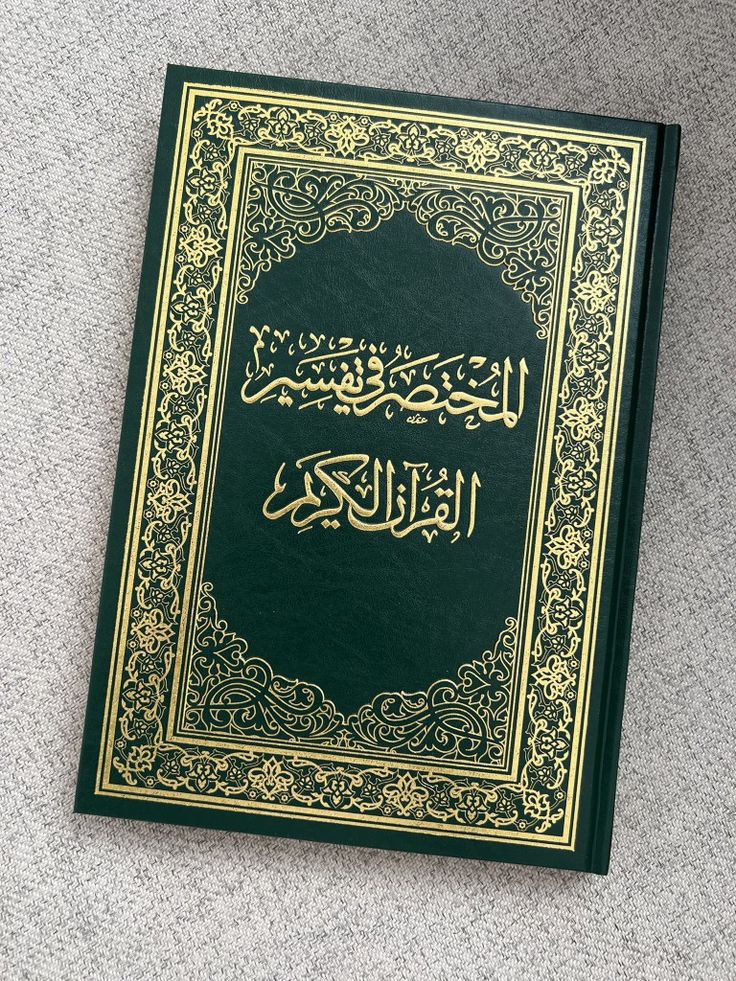 المُخْتَصَرُ فِي تَفْسِيرِ
القُرْآنِ الكَرِيمِ